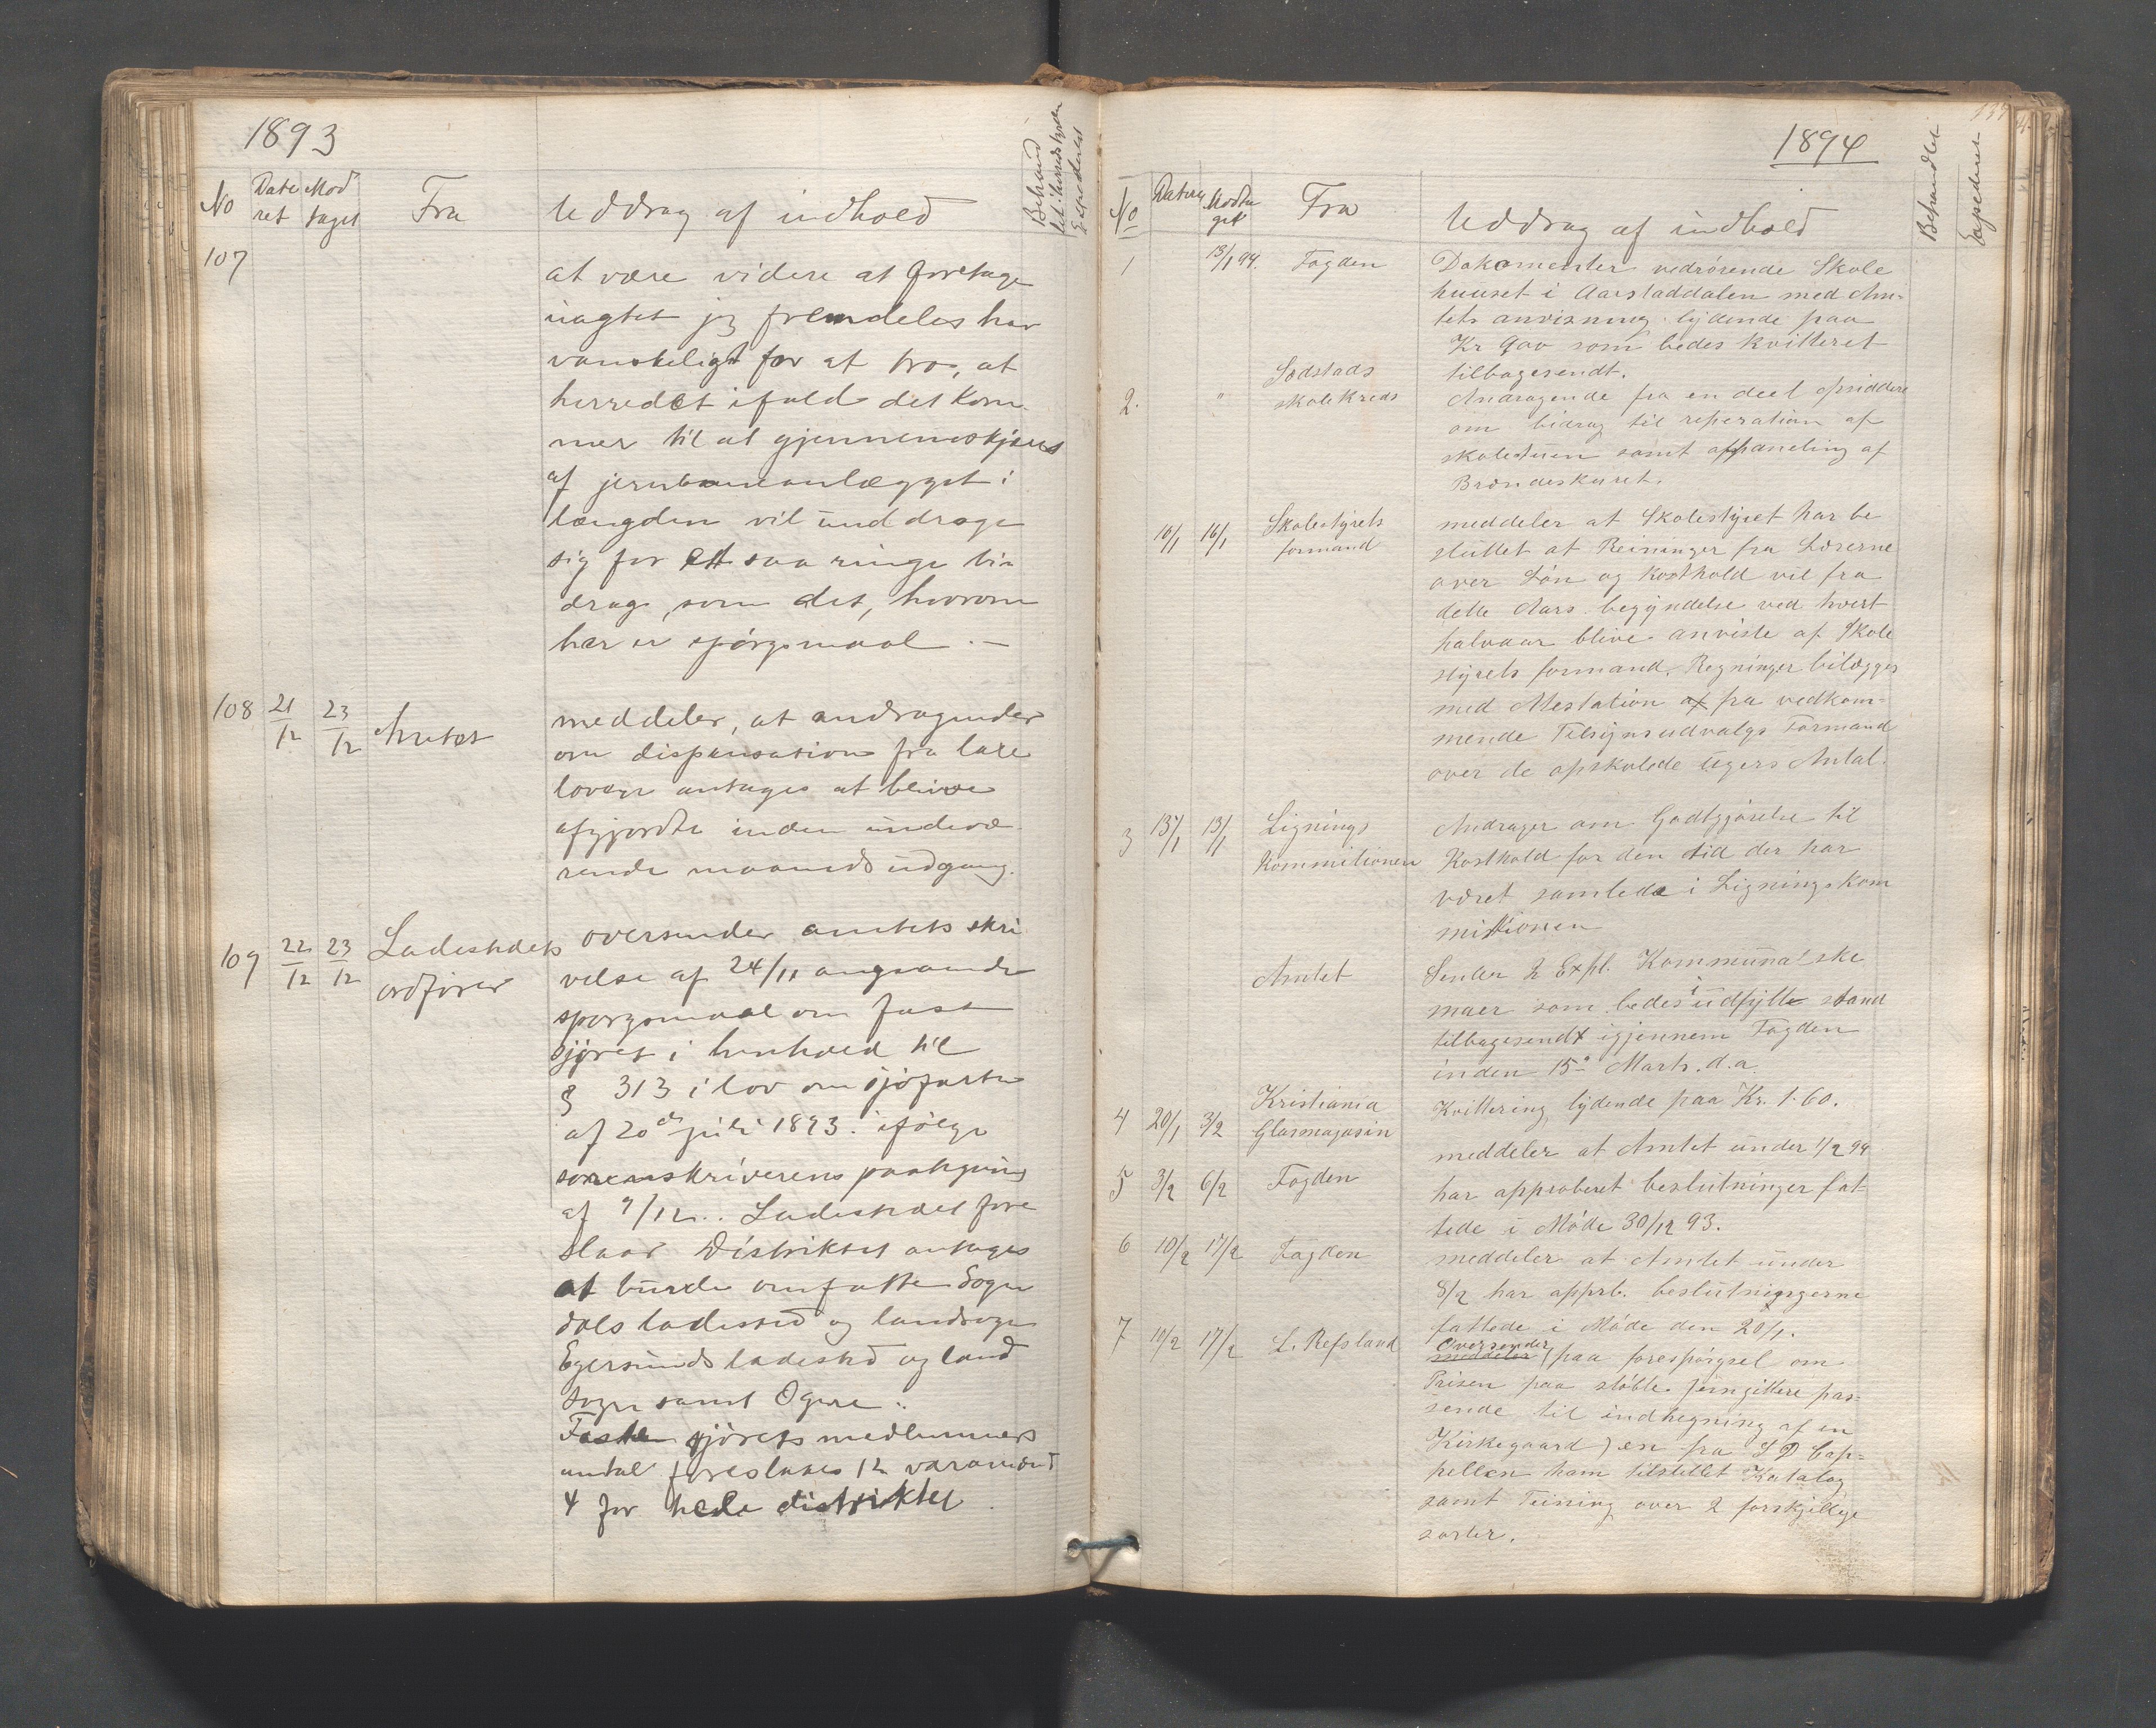 1893
No Dateret Modtaget Fra Uddrag af indhold Behandlet i herredsstyren Expederet
107
at være videre at foretage
uagtet jeg fremdeles har
vanskeligt for at tro, at
herredet ifald det kom-
mer til at gjennemskjæres
af jernbaneanlægget i
længden vil unddrage
sig for et saa ringe bi-
drag, som det, hvorom
her er spörgsmaal . —
108 21/12 23/12 Amtet meddeler, at andragender
om dispensation fra lare
loven antages at blive
afgjordte inden indevæ-
rende maaneds udgang.
109 22/12 23/12 Ladestedets ordförer oversender amtets skri
velse af 24/11 angaaende
spørgsmaal om fast
sjöret i henhold til
§ 313 i lov om sjöfarten
af 20de juli 1893. ifölge
sorenskriverens paategning
af 9/12.. Ladestedet fore
slaar Distriktet antages
at burde omfatte Sogn
dals ladested og landsogn
Egersunds ladested og land
sogn samt Ogne..
Faste sjörets medlemmers
antal foreslaaes 12 varamænd
4 for hele distriktet .
1894
No Datering Modtaget Fra Uddrag af indhold Behandlet Expederet
1 13/1 94. Fogden Dokomenter vedrörende Skole
huuset i Aarstaddalen med Am-
tets anvisning lÿdende paa
Kr 900 som bedes kvitteret
tilbagesendt.
2. " Sædstads skolekreds Andragende fra en deel opsiddere
om bidrag til reperation af
skolestuen samt afpaneling af
Brændeskuret.
10/1 16/1 Skolestÿrets formand meddeler at Skolestÿret har be
sluttet at Reininger fra Lærerne
over Lön og Kosthold vil fra
dette Aars begÿndelse ved hvert
halvaar blive anviste af Skole
stÿrets formand. Regninger bilægges
med Attestation af fra vedkom-
mende Tilsÿnsudvalgs Formand
over de opskolede ugers Antal.
3 15/1 13/1 Lignings Kommitionen Andrager om Godtgjörelse til
Kosthold for den tid der har
været samlede i Ligningskom
mitionen
Amtet Sender 2 Expl. Kommunalske
maer som bedes i udfÿllt stand
tilbagesendt igjennem Fogden
inden 15de Marts. d.a.
4 20/1 3/2 Kristiania Glasmagasin Kvittering lÿdende paa Kr. 1.60.
5 3/2 6/2 Fogden meddeler at Amtet under 1/2 94
har approberet beslutninger fat-
tede i Möde 30/12 93.
6 10/2 17/2 Fogden meddeler at Amtet under
8/2 har apprb. beslutningerne
fattede i Möde den 20/1.
7 10/2 17/2 L. Refsland meddeler Oversender (paa forespörgsel om
Prisen paa stöbte jerngittere pas-
sende til indhegning af en
Kirkegaard) en fra J D Cap-
pellen ham tilstillet Katalog
samt Teining over 2 forskjellige
sorter.